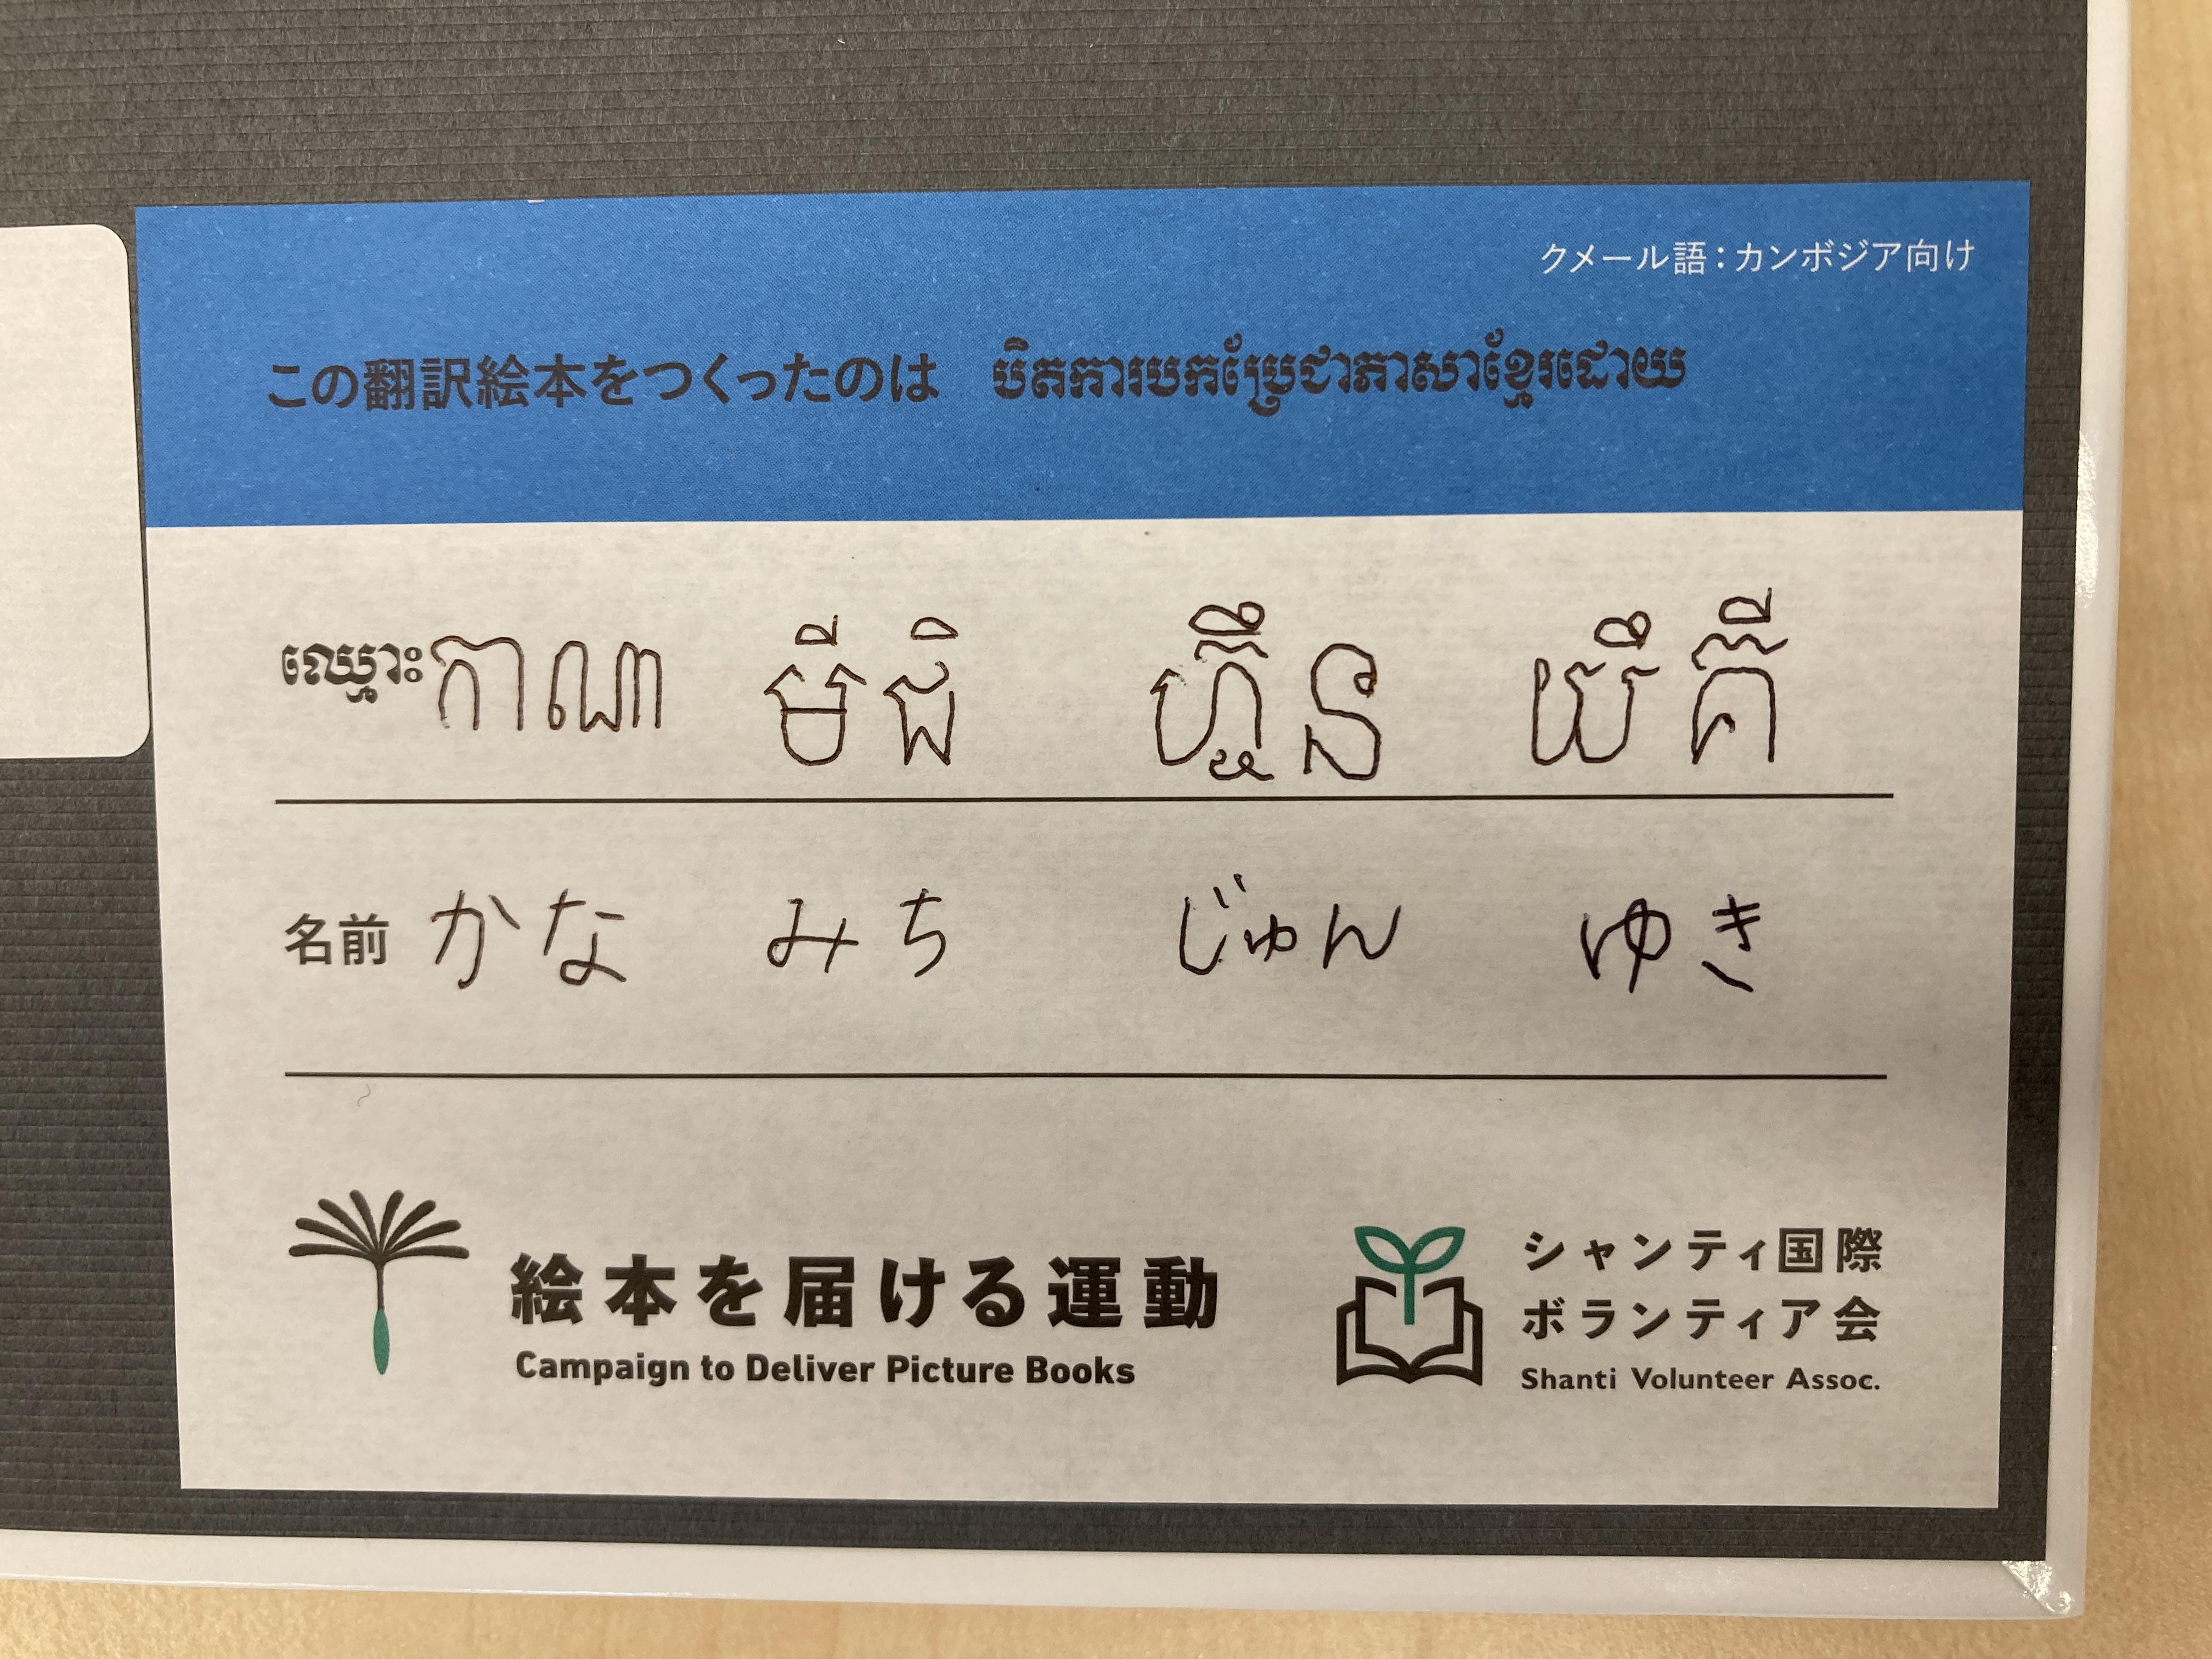 クメール語：カンボジア向け
この翻訳絵本をつくったのは បិតការបកប្រែជាភាសាខ្មែរដោយ
ឈ្មោះ កាណា មីជិ ហ្ស៊ឹន យឹគី
名前 かな みち じゅん ゆき
絵本を届ける運動
Campaign to Deliver Picture Books
シャンティ国際
ボランティア会
Shanti Volunteer Assoc.